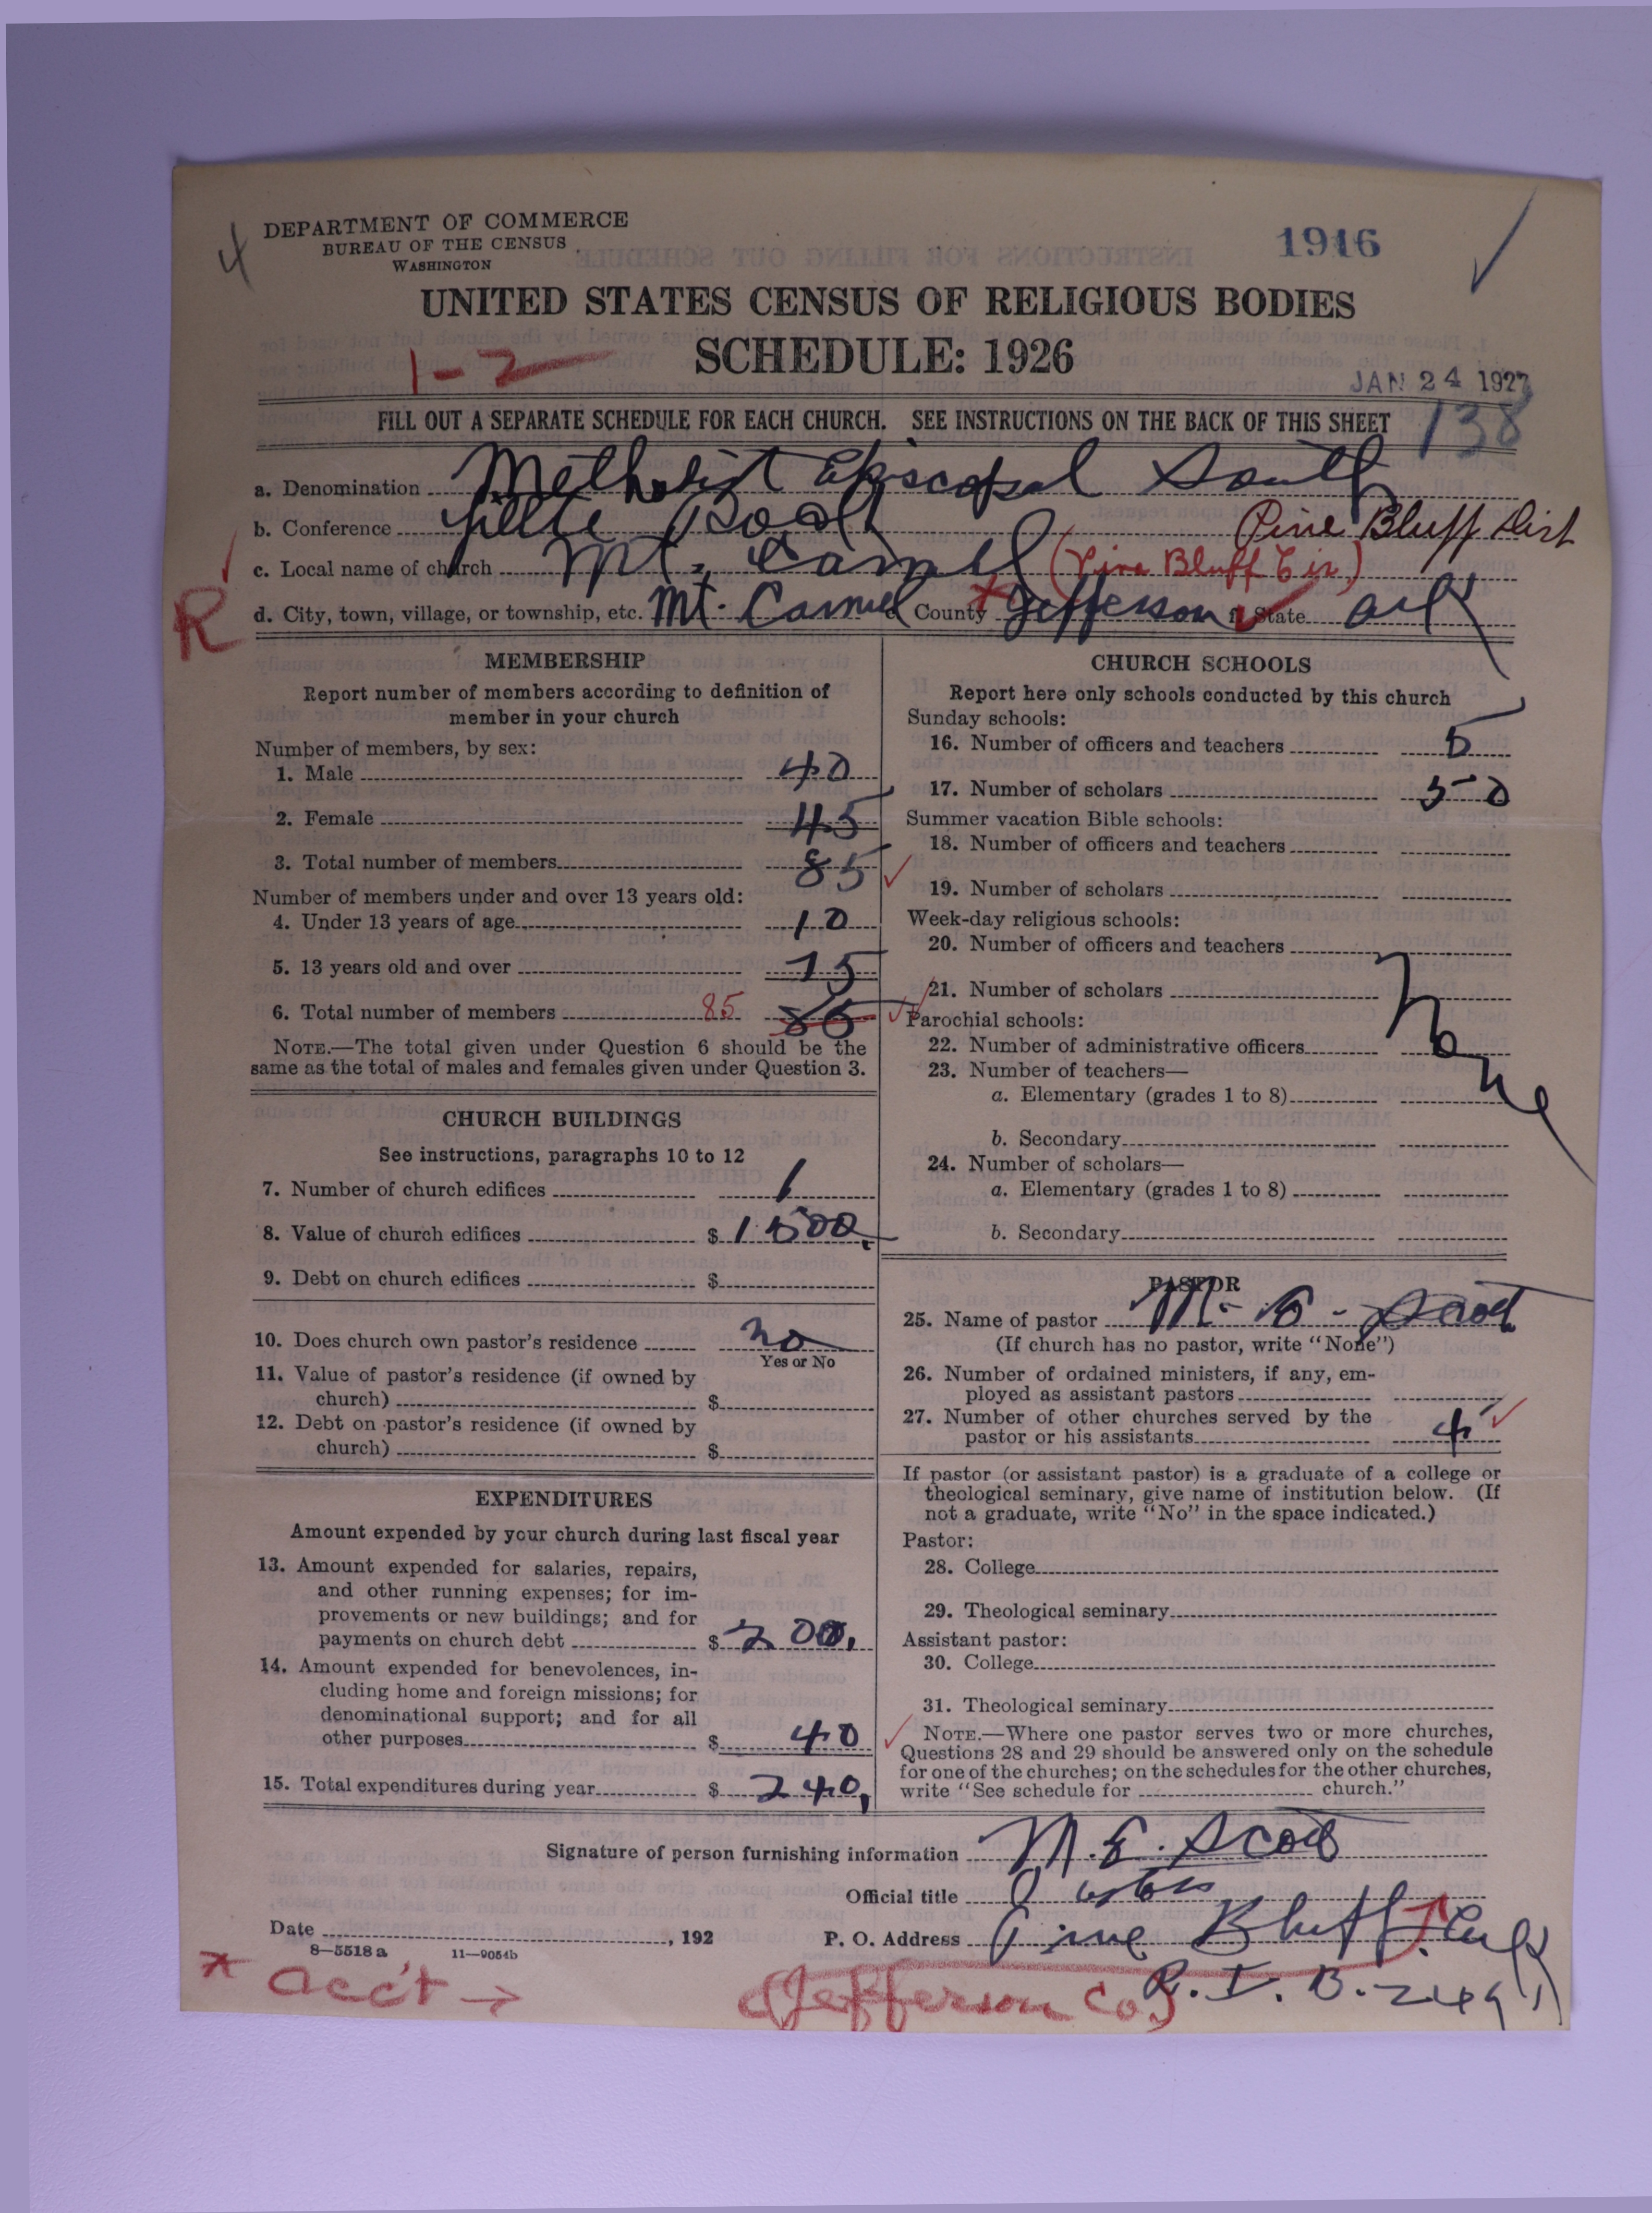 DEPARTMENT OF COMMERCE
BUREAU OF THE CENSUS
WASHINGTON
1916
UNITED STATES CENSUS OF RELIGIOUS BODIES
1-2
SCHEDULE: 1926
JAN 24 1927
138
FILL OUT A SEPARATE SCHEDULE FOR EACH CHURCH. SEE INSTRUCTIONS ON THE BACK OF THIS SHEET
a. Denomination Methodist Episcopal South
b. Conference Little Rock Pine Bluff Dist
c. Local name of church Mt. Carmel (Pine Bluff Cir)
R
d. City, town, village, or township, etc. Mt. Carmel e. County Jefferson f. State Ark
MEMBERSHIP
Report number of members according to definition of
member in your church
Number of members, by sex:
1. Male 40
2. Female 45
3. Total number of members 85
Number of members under and over 13 years old:
4. Under 13 years of age 10
5. 13 years old and over 75
6. Total number of members 85
NOTE.—The total given under Question 6 should be the
same as the total of males and females given under Question 3.
CHURCH BUILDINGS
See instructions, paragraphs 10 to 12
7. Number of church edifices 1
8. Value of church edifices $ 1500.
9. Debt on church edifices $
10. Does church own pastor's residence no
Yes or No
11. Value of pastor's residence (if owned by
church) $
12. Debt on pastor's residence (if owned by
church) $
EXPENDITURES
Amount expended by your church during last fiscal year
13. Amount expended for salaries, repairs,
and other running expenses; for im-
provements or new buildings; and for
payments on church debt $ 200.
14. Amount expended for benevolences, in-
cluding home and foreign missions; for
denominational support; and for all
other purposes $ 40
15. Total expenditures during year $ 240.
CHURCH SCHOOLS
Report here only schools conducted by this church
Sunday schools:
16. Number of officers and teachers 5
17. Number of scholars 50
Summer vacation Bible schools:
18. Number of officers and teachers
19. Number of scholars
Week-day religious schools:
20. Number of officers and teachers
21. Number of scholars
None
Parochial schools:
22. Number of administrative officers
23. Number of teachers—
a. Elementary (grades 1 to 8)
b. Secondary
24. Number of scholars—
a. Elementary (grades 1 to 8)
b. Secondary
PASTOR
25. Name of pastor M. E. Scott
(If church has no pastor, write "None")
26. Number of ordained ministers, if any, em-
ployed as assistant pastors
27. Number of other churches served by the
pastor or his assistants 4
If pastor (or assistant pastor) is a graduate of a college or
theological seminary, give name of institution below. (If
not a graduate, write "No" in the space indicated.)
Pastor:
28. College
29. Theological seminary
Assistant pastor:
30. College
31. Theological seminary
NOTE.—Where one pastor serves two or more churches,
Questions 28 and 29 should be answered only on the schedule
for one of the churches; on the schedules for the other churches,
write "See schedule for church."
Signature of person furnishing information M. E. Scott
Official title Pastor
Date , 192 P. O. Address Pine Bluff Ark
8-5518 a 11-9054b
* acc't → (Jefferson Co.)